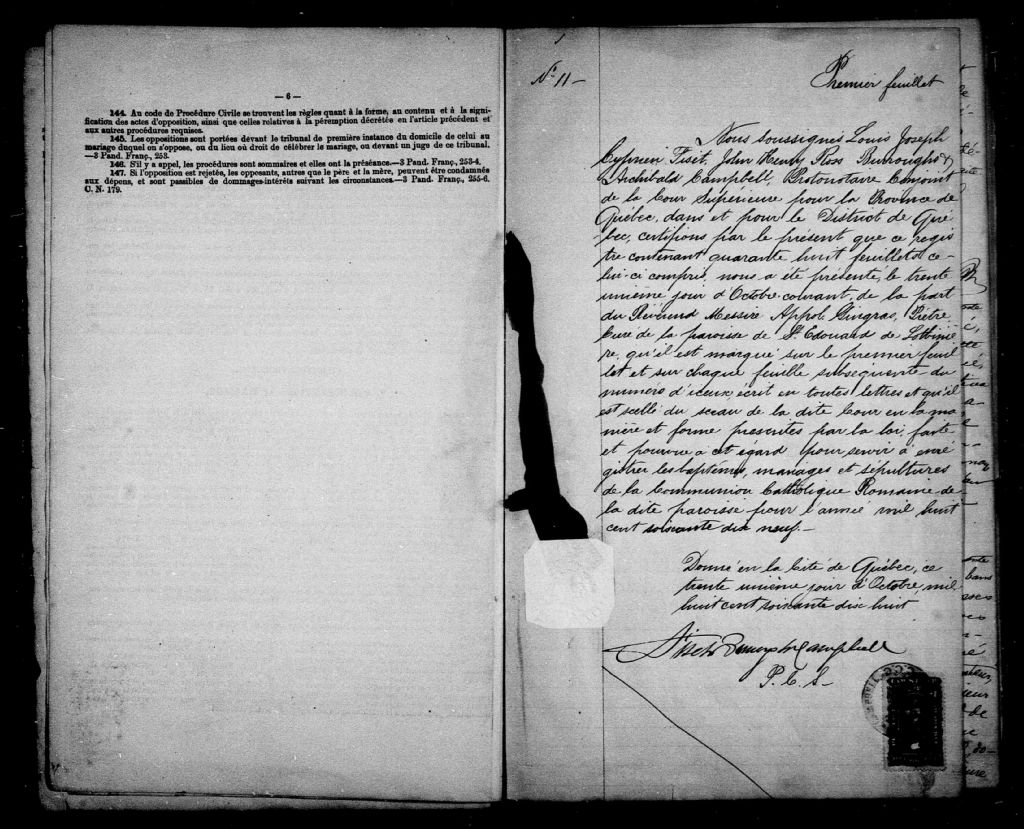 — 6 —
144. Au code de Procédure Civile se trouvent les règles quant à la forme, au contenu et à la signi-
fication des actes d'opposition, ainsi que celles relatives à la péremption décrétée en l'article précédent et
aux autres procédures requises.
145. Les oppositions sont portées devant le tribunal de première instance du domicile de celui au
mariage duquel on s'oppose, ou du lieu où droit de célébrer le mariage, ou devant un juge de ce tribunal.
—3 Pand. Franç., 253.
146. S'il y a appel, les procédures sont sommaires et elles ont la préséance.—3 Pand. Franç., 253-4.
147. Si l'opposition est rejetée, les opposants, autres que le père et la mère, peuvent être condamnés
aux dépens, et sont passibles de dommages-intérêts suivant les circonstances.—3 Pand. Franç., 255-6.
C. N. 179.
No 11 —
Premier feuillet
Nous soussignés Louis Joseph
Cyprien Fiset, John Henry Ross Burroughs &
Archibald Campbell, Protonotaire Conjoint
de la Cour Supérieure pour la Province de
Québec, dans et pour le District de Qué
-bec, certifions par le présent que ce regis
tre contenant quarante huit feuillets ce-
lui-ci compris, nous a été présenté, le trente
unième jour d'Octobre courant, de la part
du Révérend Messire Appol. Gingras, Prêtre
Curé de la paroisse de St. Edouard de Lotbiniè
re, qu'il est marqué sur le premier feuil
let et sur chaque feuille subsequente du
numéro d'iceux, écrit en toutes lettres et qu'il
est scellé du sceau de la dite Cour en la ma
nière et forme prescrites par la loi, faite
et pourvue à cet égard pour servir à enré
gistrer les baptêmes, mariages et sépultures
de la Communion Catholique Romaine de
la dite paroisse pour l'année mil huit
cent soixante dix neuf.—
Donné en la Cité de Québec, ce
trente unième jour d'Octobre, mil
huit cent soixante dix huit
Fiset Burroughs Campbell
P. C. S.